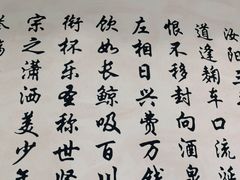 汝阳三
道逢麹车口流涎
恨不移封向酒泉
左相日兴费万钱
饮如长鲸吸百川
衔杯乐圣称世
宗之潇洒美少